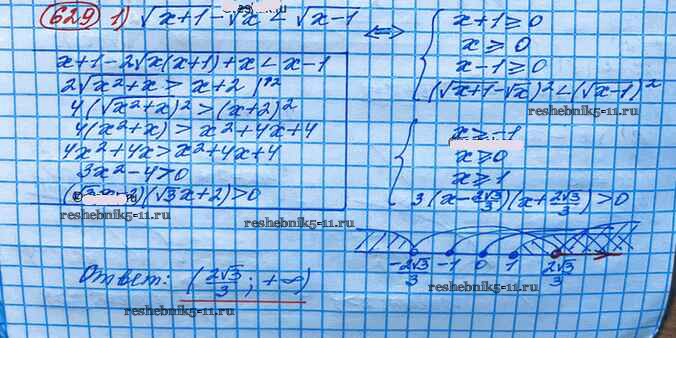 629 1) √x+1 - √x < √x-1 ⟺ { x+1 ≥ 0
x ≥ 0
x-1 ≥ 0
(√x+1 - √x)² < (√x-1)²
x+1-2√x(x+1)+x < x-1
2√x²+x > x+2 |²
4(√x²+x)² > (x+2)²
4(x²+x) > x²+4x+4
4x²+4x > x²+4x+4
3x²-4>0
(√3x+2)>0
x ≥ -1
x ≥ 0
x ≥ 1
3(x-2√3/3)(x+2√3/3)>0
-2√3/3 -1 0 1 2√3/3
Ответ: (2√3/3; +∞)
reshebnik5-11.ru
reshebnik5-11.ru
reshebnik5-11.ru
reshebnik5-11.ru
reshebnik5-11.ru
reshebnik5-11.ru